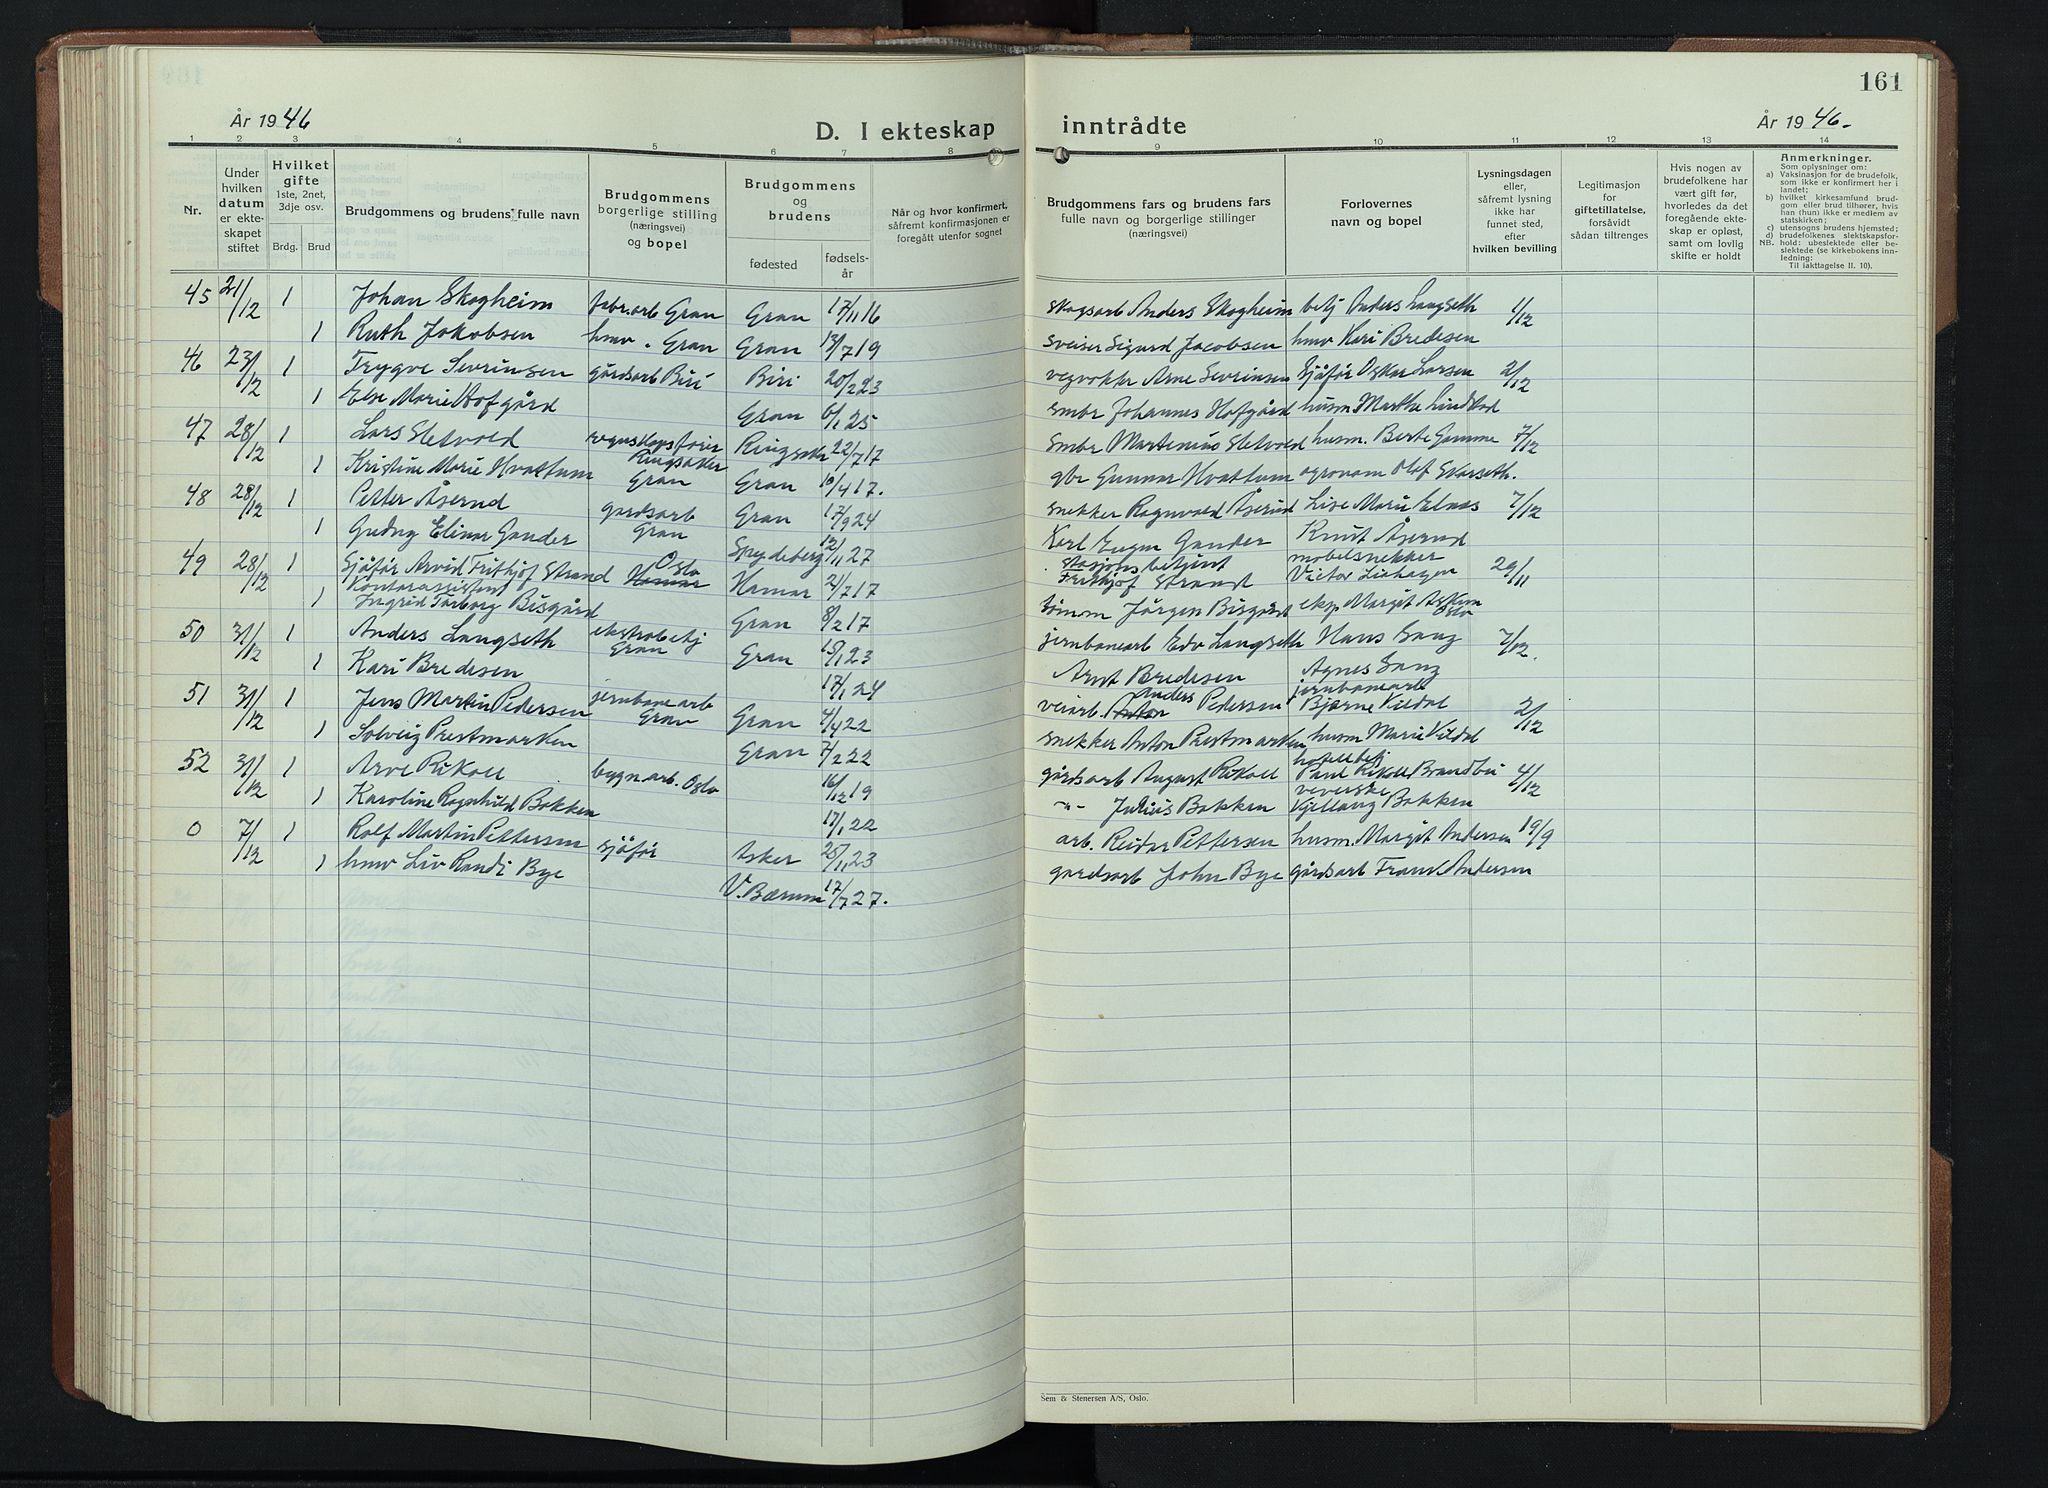 161
År 1946
D. I ekteskap inntrådte
År 1946.
1 2 3 4 5 6 7 8 9 10 11 12 13 14
Nr.
Under hvilken datum er ekteskapet stiftet
Hvilket gifte 1ste, 2net, 3dje osv.
Brdg. Brud
Brudgommens og brudens fulle navn
Brudgommens borgerlige stilling (næringsvei) og bopel
Brudgommens og brudens
fødested
fødselsår
Når og hvor konfirmert, såfremt konfirmasjonen er foregått utenfor sognet
Brudgommens fars og brudens fars fulle navn og borgerlige stillinger (næringsvei)
Forlovernes navn og bopel
Lysningsdagen eller, såfremt lysning ikke har funnet sted, efter hvilken bevilling
Legitimasjon for giftetillatelse, forsåvidt sådan tiltrenges
Hvis nogen av brudefolkene har vært gift før, hvorledes da det foregående ekteskap er opløst, samt om lovlig skifte er holdt
Anmerkninger.
Som oplysninger om:
a) Vaksinasjon for de brudefolk, som ikke er konfirmert her i landet;
b) hvilket kirkesamfund brudgom eller brud tilhører, hvis han (hun) ikke er medlem av statskirken;
c) utensogns brudens hjemsted;
d) brudefolkenes slektskapsforhold: ubeslektede eller beslektede (se kirkebokens innledning:
NB. Til iakttagelse II. 10).
45 21/12 1 Johan Skogheim fabr.arb Gran Gran 17/11 16 skogsarb Anders Skogheim betj Anders Langseth 1/12
1 Ruth Jakobsen hmv. Gran Gran 13/7 19 sveiser Sigurd Jacobsen hmv Kari Bredesen
46 23/12 1 Trygve Sevrinsen gårdsarb Biri Biri 20/2 23 vegvokter Arne Sevrinsen Sjåfør Oskar Larsen 2/12
1 Else Marie Hofgård Gran 6/1 25 smbr Johannes Hofgård husm. Marthe Lindstad
47 28/12 1 Lars Sletvold regnskapsfører Ringsaker Ringsaker 22/7 17 smbr Martenius Sletvold husm. Berte Gamme 7/12
1 Kristine Marie Hvattum Gran Gran 10/4 17. gbr Gunnar Hvattum agronom Olaf Skarseth.
48 28/12 1 Petter Åserud gardsarb Gran 17/9 24 snekker Ragnvald Åserud Lise Marie Elnæs 7/12
1 Gudny Elinor Gander Gran Spydeberg 12/11 27 Karl Eugen Gander Knut Åserud
49 28/12 1 Sjåfør Arvid Frithjof Strand Oslo Hamar 2/7 17 stasjonsbetjent Frithjof Strand møbelsnekker Victor Liehagen 29/11
1 Kontorassistent Ingrid Torborg Bisgård Gran 8/2 17 Jørgen Bisgård eksp. Margit Askim Oslo
50 31/12 1 Anders Langseth ekstrabetj Gran Gran 15/1 23 jernbanearb Edv Langseth Hans Gang 7/12.
1 Kari Bredesen 17/1 24 Arnt Bredesen Agnes Gang
51 31/12 1 Jens Martin Pedersen jernbanearb Gran Gran 4/4 22 veiarb. Anders Pedersen jernbanearb Bjarne Kildal 2/12
1 Solveig Prestmarken Gran 7/2 22 snekker Anton Prestmarken husm Marie Kildal
52 31/12 1 Arve Rikoll bygn.arb. Oslo 16/12 19 gårdsarb August Rikoll hotellbetj Paul Rikoll Brandbu 4/12
1 Karoline Ragnhild Bakken 17/1 22 -"- Julius Bakken veverske Kjellaug Bakken
0 7/12 1 Rolf Martin Pettersen sjåfør Asker 25/1 23 arb. Reidar Pettersen husm. Margit Andersen 19/9
1 hmv Liv Randi Bye V. Bærum 17/7 27. gardsarb John Bye gårdsarb Frans Andersen
Sem & Stenersen A/S, Oslo.